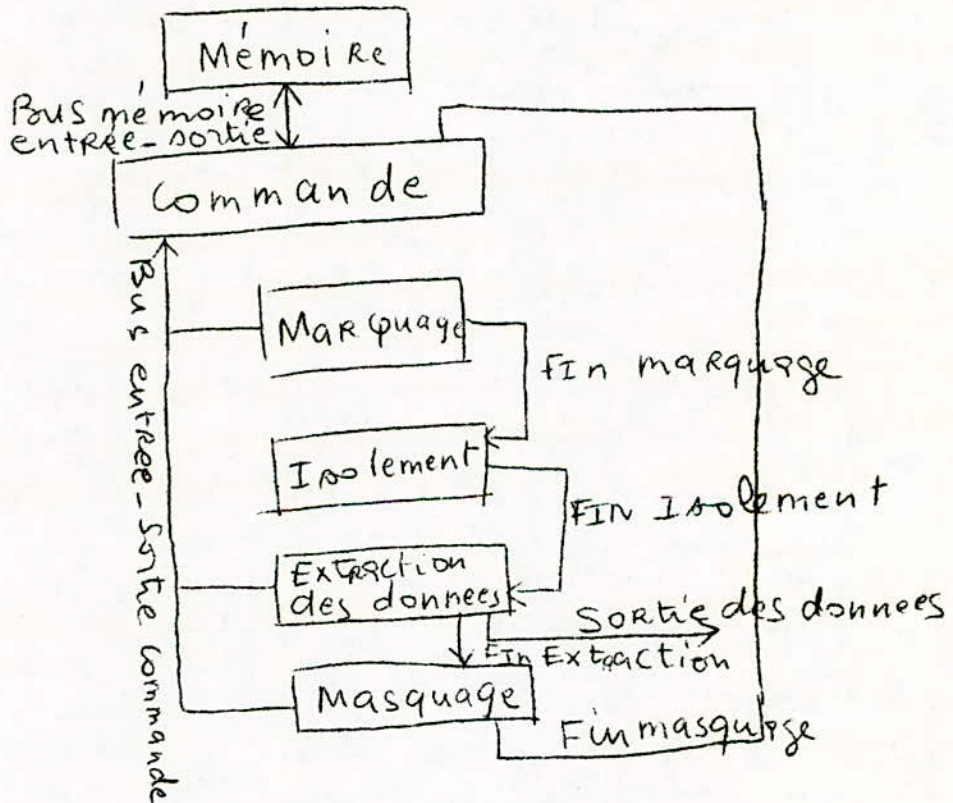 Mémoire
Bus mémoire
entrée-sortie
Commande
Bus entree-sortie commande
Marquage
FIn marquage
Isolement
FIN Isolement
Extraction
des donnees
Sortie des donnees
Fin Extraction
Masquage
Fin masquage